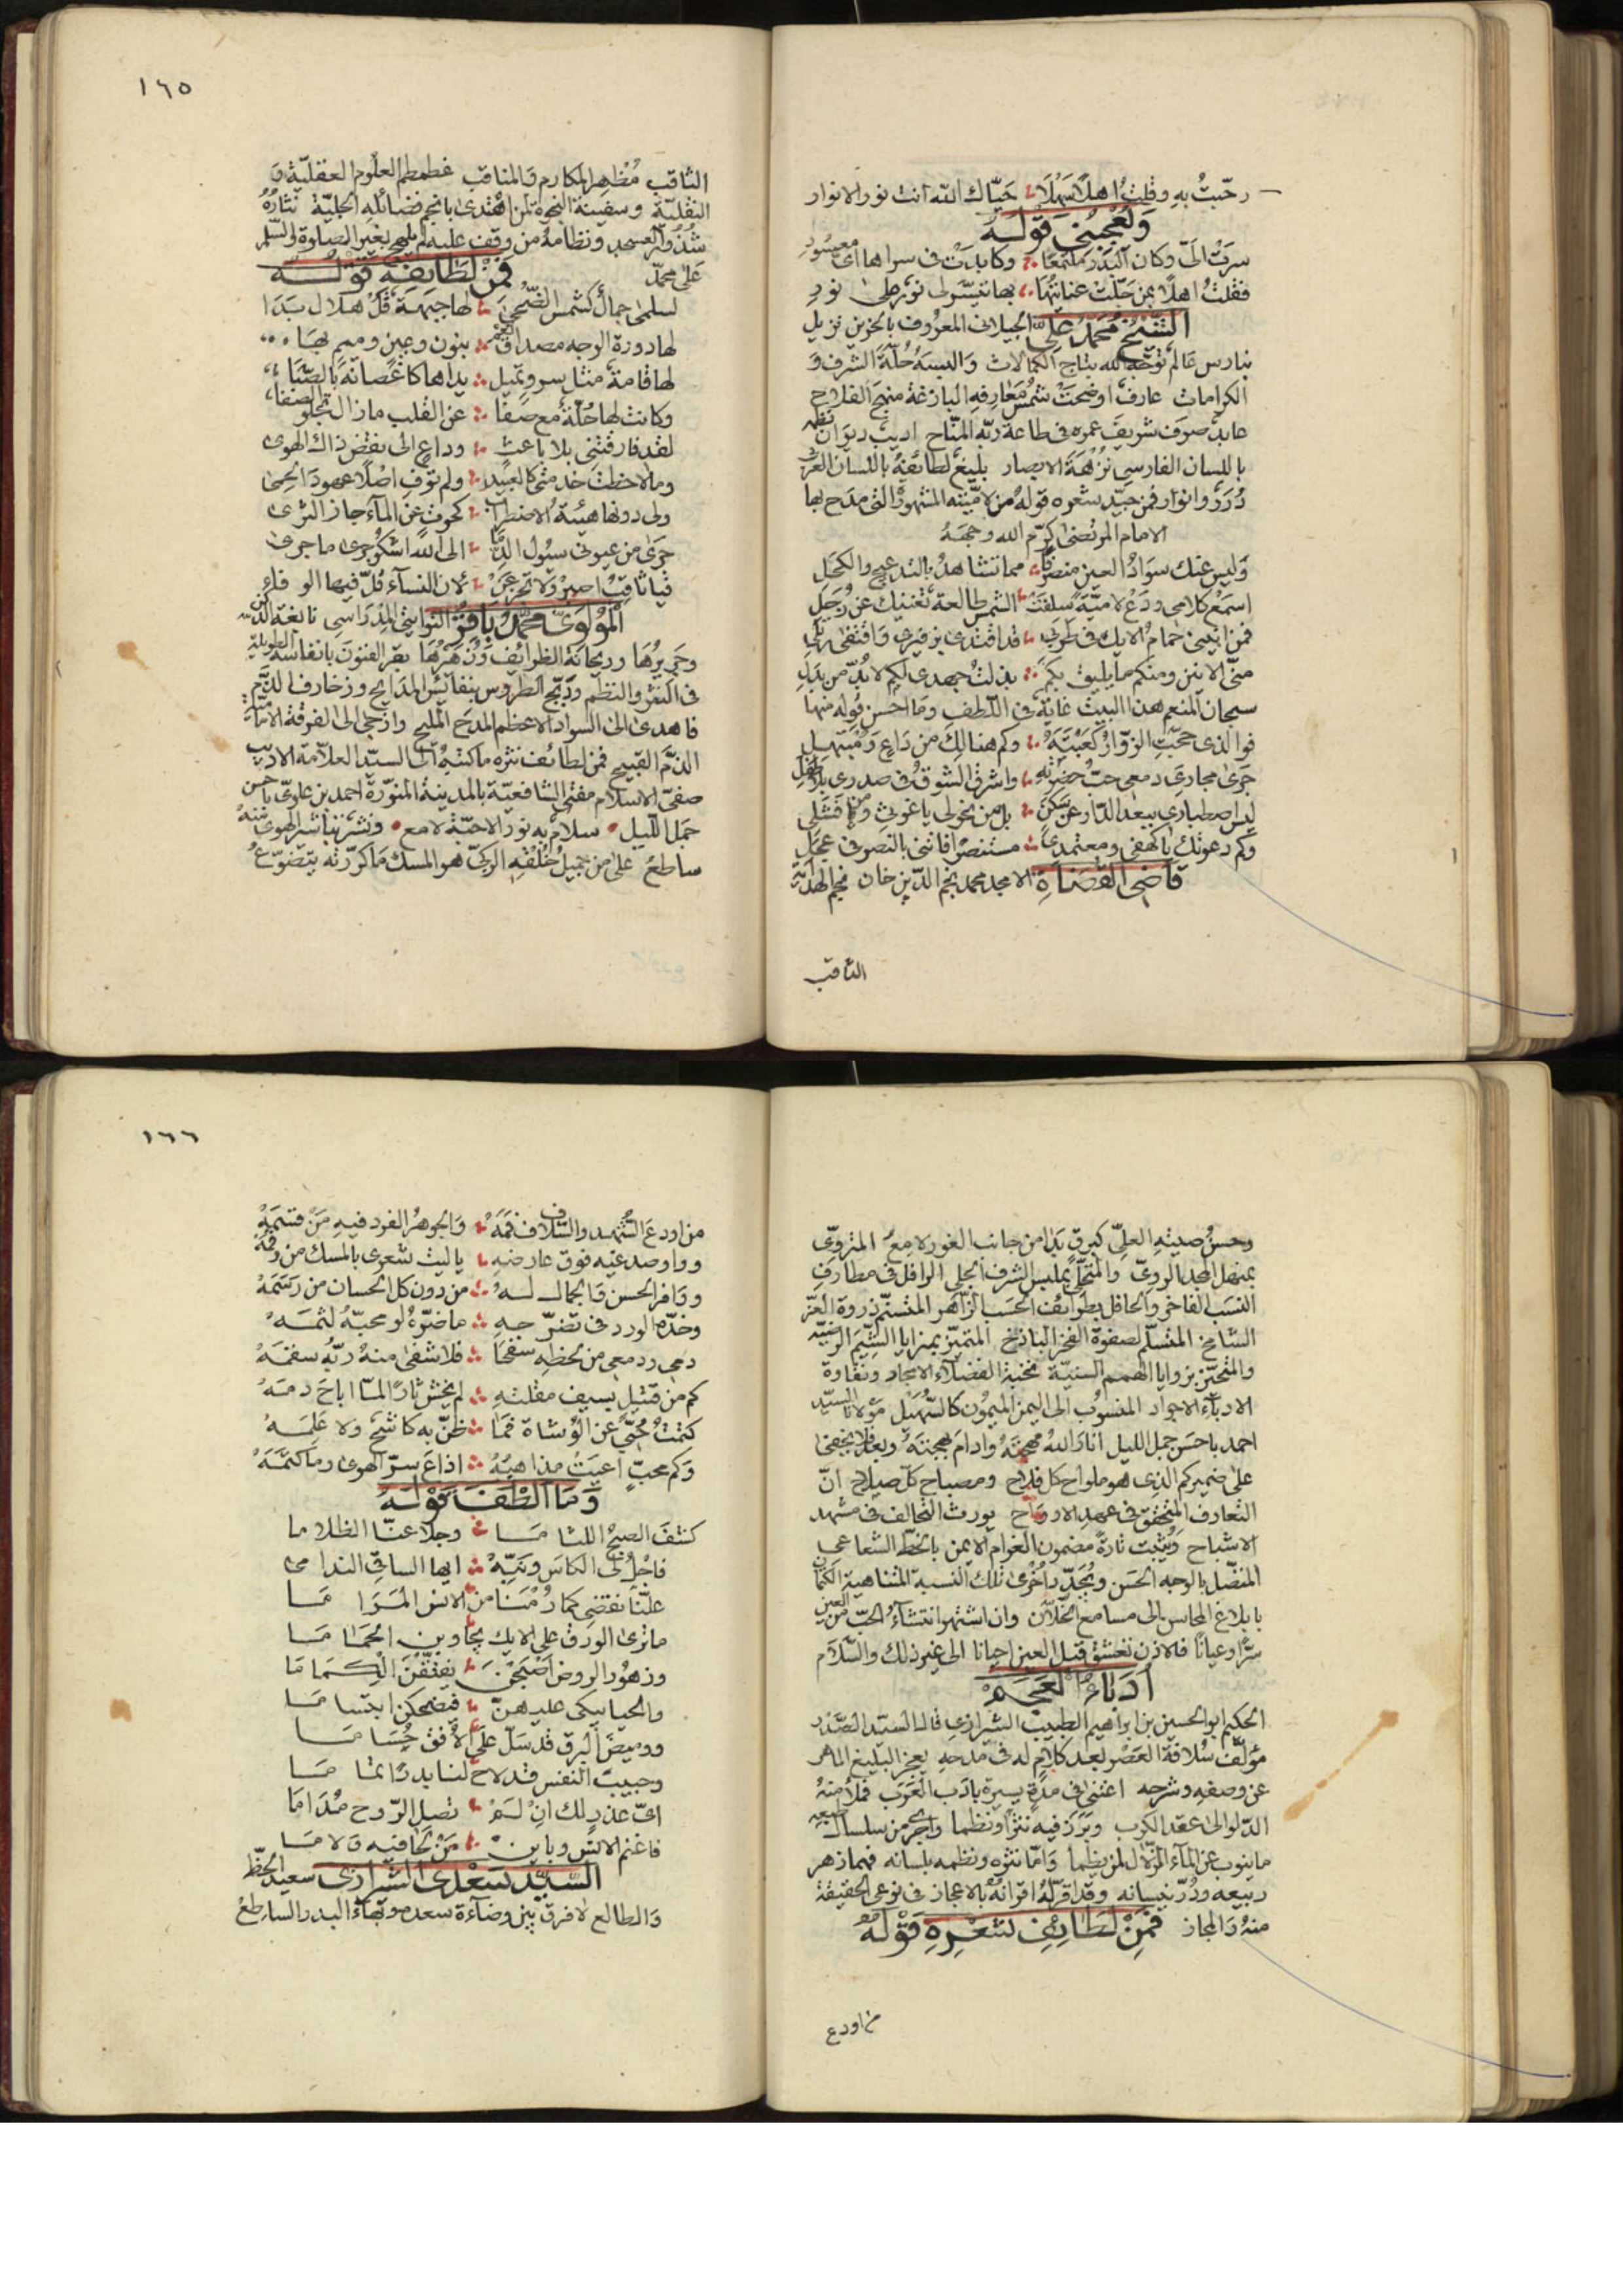 رحّبتُ بهِ وقلتُ اهلًا سَهْلَا حَيّاك الله انت نور الانوار
وَيُعْجِبُنِي قولُهُ
سرَتْ اليّ وكان البَدر ملتمعًا وكابدَتْ في سراها ايّ معسُورِ
فقلتُ اهلًا بمن جَلّت عنايتُهَا بها تيسّر لي نور على نورِ
الشّيخ محمّد علي الجيلاني المعروف بالحزين نزيل
بنارس عالم توّجه الله بتاج الكمالات وَالبسهُ حُلّةَ الشرف وَ
الكرامات عارفٌ اوضحَتْ شمسُ مَعَارِفهِ البازغة منهجَ الفلاح
عابد صرف شريفَ عمره في طاعة ربّه الفتّاح اديبٌ ديوان نظمه
باللسان الفارسي نُزْهَةُ الابصار بليغٌ لطائفهُ باللسان العربي
دُرَرٌ وانوار فمن جيّد شعره قولهُ من لاميّته المشهورة التي مدح بها
الامام المرتضى كرّم الله وجههُ
وَليس عنك سوَادُ العين منصرفًا مما تشاهدُ بالتدعيج والكحَلِ
اسمَعْ كلامي ودَعْ لاميّةً سلفَتْ الشمس طالعة تغنيك عن زُحَلِ
فمن انيني حمَامُ الايك في طربٍ قد اقتدى بزفيري وَاقتفى رَمَلي
منّي الانين ومنكم ما يليق بكم بذلتُ جهدي لكم لا بُدّ من بَدَلِ
سبحان المنعم هذا البيت غايةٌ في اللّطف ومَا احسن قوله منها
فوالذي حجّتِ الزوّارُ كعَبْتَهُ وكم هنالك من دَاعٍ وَمُبْتَهِلِ
جرىٰ مجاري دمعي حبُّ حضرتِهِ واشرق الشوقُ في صدري بلا طفلِ
ليس اصطباري ببعد الدّار عن سَكَنٍ بل من نحولي يا غوثي ومن فشلي
وكم دعوتك يا كهفي ومعتمدي مستنصرًا فاتني بالنصر في عجَلِ
قاضي القضاة الامجد محمد نجم الدّين خان نجم الهدايّة
الثاقب
١٦٥
الثاقب مُظهر المكارم وَالمناقب غطمطم العلُوم العقليّة وَ
النقليّة وسفينة النجوة لمن اهتدىٰ بانجم فضائله الجليّة نثارُهُ
شُذُور العسجد ونظامهُ من وقف عليه لم يلهج بغير الصلوة والسّلم
على محمّد فمن لطائفه قولُه
لسلمىٰ جمالٌ كشمس الضّحىٰ لها جبهة قل هلال بَدَا
لها دورة الوجه مصداق بنون وعين وميم بها
لها قامة مثل سرو يميل يداها كاغصانه بالصّبَا
وكانت لها خُلّة مع صفا عن القلب ما زال تجلو الصفا
لقد فارقتني بلا باعثٍ وداعٍ الى نقض ذاك الهوىٰ
وما لاحظت خدمتي كالعبيد ولم توف اصْلًا عهودَ الحِمىٰ
ولي دونها هيئةُ الاضطراب كحوت عن المآء جاز الثرىٰ
جرىٰ من عيوني سيُول الدّمَا الى الله اشكُو جرىٰ ما جرىٰ
فيا ثاقب اصبرْ وَلا تجزعَنْ لان النسآء قلّ فيها الوفاء
المَوْلَوي محمّد باقر النّوائتي المِدراسي نابغة الدّهر
وحَريرُهَا وريحانة الظرايف وَزَهرُهَا بقر الفنون بانفاسه الطويلة
في النثر والنظم ودَبّج الطروس بنفائس المدَائح وزخارف الذّم
فاهدىٰ الى السواد الاعظم المدحَ المليح وازجىٰ الى الفرقة الامامية
الذمَّ القبيح فمن لطائف نثره ما كتبهُ الى السيّد العلّامة الاديب
صفيّ الاسلام مفتي الشافعيّة بالمدينة المنوّرة احمد بن علوي باحسن
جمل اللّيل سلام به نور الاحبّة لامع ونشر تباشر الهوى منهُ
ساطعٌ على من جميلُ خُلْقِهِ الزكيّ هو المسك ما كرّرته يتضوّعُ
وحسنُ صيتِهِ العليّ كبرقٍ بَدا من جانب الغور لامِعُ المتروّي
بمنهل المجد الرويّ والمتحلّي بملبس الشرف الجلي الرافل في مطارفِ
النسَب الفاخر وَالحافل بطَرائف الحسَب الزّاهر المتسنّم ذروة العزّ
الشامخ المتسلّم لصفوة الفخر الباذخ المتميّز بمزايا الشِيَم الرضيّة
والمتحيّز بزوايا الهمم السنيّة نخبة الفضلاء الامجاد ونقاوة
الادباء الاجواد المنسُوب الى اليمن الميمُون كالسُّهَيل مَولانا السيّد
احمد باحسَن جمل الليل انارَ اللهُ مهجتَهُ وادامَ بهجتَهُ وبعد فلا يخفىٰ
على ضميركم الذي هو ملواح كل فلاح ومصباح كلّ صلاح انّ
التعارف المتحقق في عهد الارواح يورث التحالف في مشهد
الاشباح وَيُثبت تارةً مضمون الغرام الايمن بالخطّ الشعاعي
المتصّل بالوجه الحسَن ويُجَدّد اُخْرىٰ تلك النسبة المتناهية الكتمان
بابلاغ المحاسن الى مسامع الخلّان وان اشتهر انتشآءُ الحبّ من العين
سرًّا وعيانًا فالاذن تعشق قبل العين احيانا الى غير ذلك والسّلام
اُدَبَاءُ العَجَمْ
الحكيم ابو الحسين بن ابراهيم الطبيب الشيرازي قال السيّد الصَّدر
مؤلّف سُلافة العَصْر بعد كلام له في مَدحِه يعجز البليغ الماهر
عن وصفه وشرحه اعتنىٰ في مدّة يسيرة بادَب العَرَب فملأ منهُ
الدّلو الىٰ عقد الكرب وبَرَز فيه نثرًا ونظما واجرىٰ من سلسال طبعهِ
ما ينوب عن المآء الزّلال لمن يظما وَامّا نثره ونظمه بلسانه فهما زهر
ربيعه ودُرّ نيسانه وقد اقرّ لهُ اقرانُهُ بالاعجاز في نوعي الحقيقة
منهُ وَالمجاز فَمِنْ لطَائفِ شعْرِهِ قَوْلُهُ
من اودع
١٦٦
من اودعَ الشُّهد والسّلافَ فمَهْ وَالجوهرُ الفرد فيه مَنْ قسَمَهْ
وواو صدغيه فوق عارضهِ يا ليت شعري بالمسك من رقمَهْ
ووَافر الحسن وَالجمال لهُ من دون كل الحسان من رَسَمَهْ
وخدّه الورد في تضرّجهِ ما ضرّهُ لو محبّهُ لثمَهْ
دمي ردمعي من لحظهِ سفحَا فلا شفىٰ منهُ رَبُّه سقمَهْ
كم من قتيل بسيف مقلتهِ لم يخش ثارًا لمّا اباحَ دمَهْ
كتمتُ حُبّي عن الوُشاة فمَا ظنّ به كاشحٌ ولا عَلِمَهْ
وَكم محبٍّ اعيَتْ مذاهبُهُ اذاعَ سرّ الهوىٰ وما كتمَهْ
وَمَا الطفَ قَوْلهُ
كشفَ الصبحُ اللثاما وجلا عنّا الظلاما
فاجْلُ لي الكاسَ ونَبِّهْ ايها الساقي الندامىٰ
علّنا نقضي كما رُمْنَا من الانس المَرَاما
ما ترىٰ الورق على الايك يجاوبن الحمَاما
وزهُور الروض اصْبَحْنَ يفتّقْنَ الكِمَاما
والحيا يبكي عليهنّ فيضحكن ابتساما
ووميضَ البرق قد سلّ على الاُفق حُسَاما
وحبيبَ النفس قد لاح لنا بدرًا تماما
ايّ عذرٍ لك انْ لَمْ تصل الرّوح مُدَامَا
فاغنم الانس وباين مَنْ لحَا فيه وَلاما
السيّد سَعدي الشيرازي سعيد الحَظّ
وَالطالع لا فرق بين وضآءة سعده وبَهآء البدر الساطِعْ